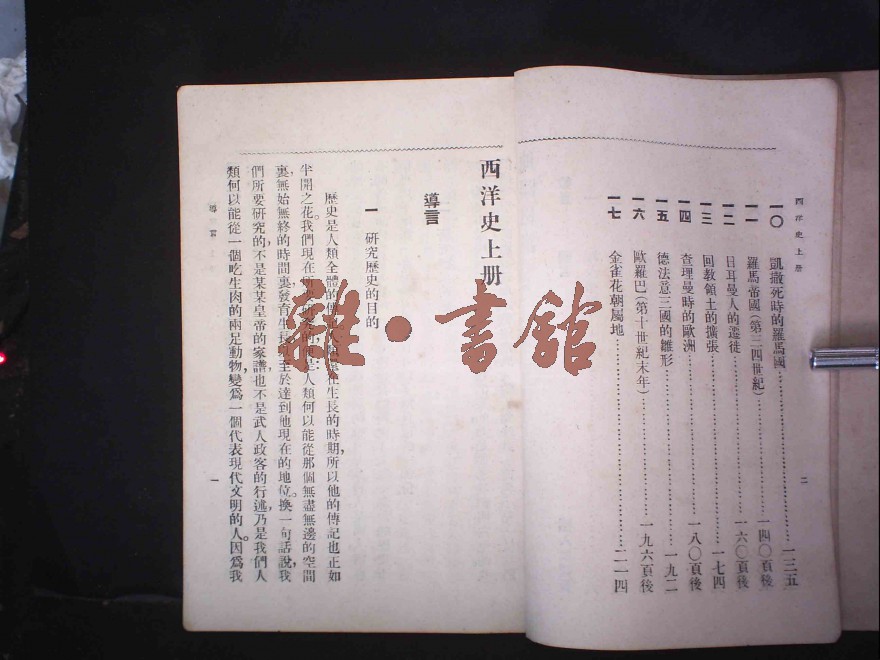 西洋史上册
一〇 凱撒死時的羅馬國……一三五
一一 羅馬帝國(第三四世紀)……一四〇頁後
一二 日耳曼人的遷徙……一六〇頁後
一三 回教領土的擴張……一七四
一四 查理曼時的歐洲……一八〇頁後
一五 德法意三國的雛形……一九二
一六 歐羅巴(第十世紀末年)……一九六頁後
一七 金雀花朝屬地……二一四
二
西洋史上册
導言
一 研究歷史的目的
歷史是人類全體的傳生長的時期,所以他的傳記也正如
半開之花。我們現在人類何以能從那個無盡無邊的空間
裏,無始無終的時間裏,發育生長,以至於達到他現在的地位。換一句話說,我
們所要研究的,不是某某皇帝的家譜,也不是武人政客的行述,乃是我們人
類何以能從一個吃生肉的兩足動物,變爲一個代表現代文明的人。因爲我
導言
一
雜·書館